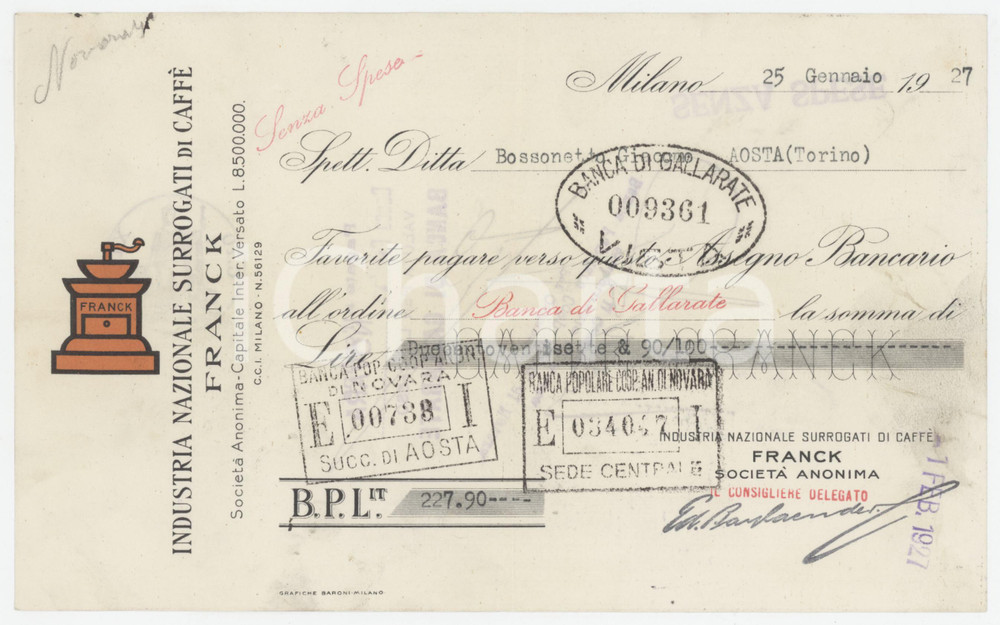 Novara
INDUSTRIA NAZIONALE SURROGATI DI CAFFÈ
FRANCK
Società Anonima-Capitale Inter. Versato L.8.500.000.
C.C.I. MILANO-N.56129
FRANCK
Senza Spese
SENZA SPESE
Milano 25 Gennaio 1927
Spett. Ditta Bossonetto Giacomo AOSTA(Torino)
BANCA DI GALLARATE
009361
Favorite pagare verso questo Assegno Bancario
all'ordine Banca di Gallarate la somma di
Lire Duecentoventisette & 90/100
FRANCK
BANCA POP. COOP. ANON.
DI NOVARA
E 00738 I
SUCC. DI AOSTA
BANCA POPOLARE COOP. AN. DI NOVARA
E 034047 I
SEDE CENTRALE
INDUSTRIA NAZIONALE SURROGATI DI CAFFÈ
FRANCK
SOCIETÀ ANONIMA
IL CONSIGLIERE DELEGATO
B.P.Lit 227.90----
-1 FEB. 1927
GRAFICHE BARONI-MILANO
Charta